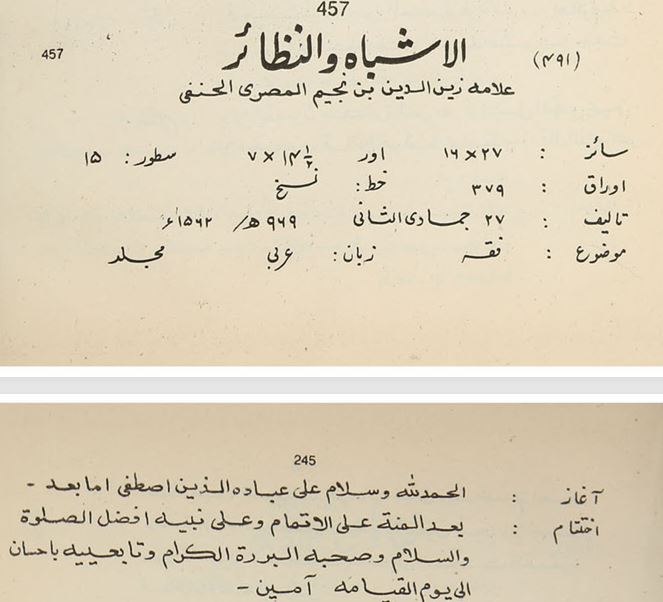 457
457
(۴۹۱) الاشباه والنظائر
علامه زین الدین بن نجیم المصری الحنفی
سائز : ۲۷ × ۱۶ اور ۱۴ ۱/۲ × ۷ سطور: ۱۵
اوراق : ۳۷۹ خط: نسخ
تالیف : ۲۷ جمادی الثانی ۹۶۹ھ/ ۱۵۶۲ء
موضوع : فقہ زبان: عربی مجلد
245
آغاز : الحمدلله وسلام علی عباده الذین اصطفی امابعد -
اختتام : بعد المنة علی الاتمام وعلی نبیه افضل الصلوة
والسلام وصحبه البررة الکرام وتابعییه باحسان
الی یوم القیامه آمین -